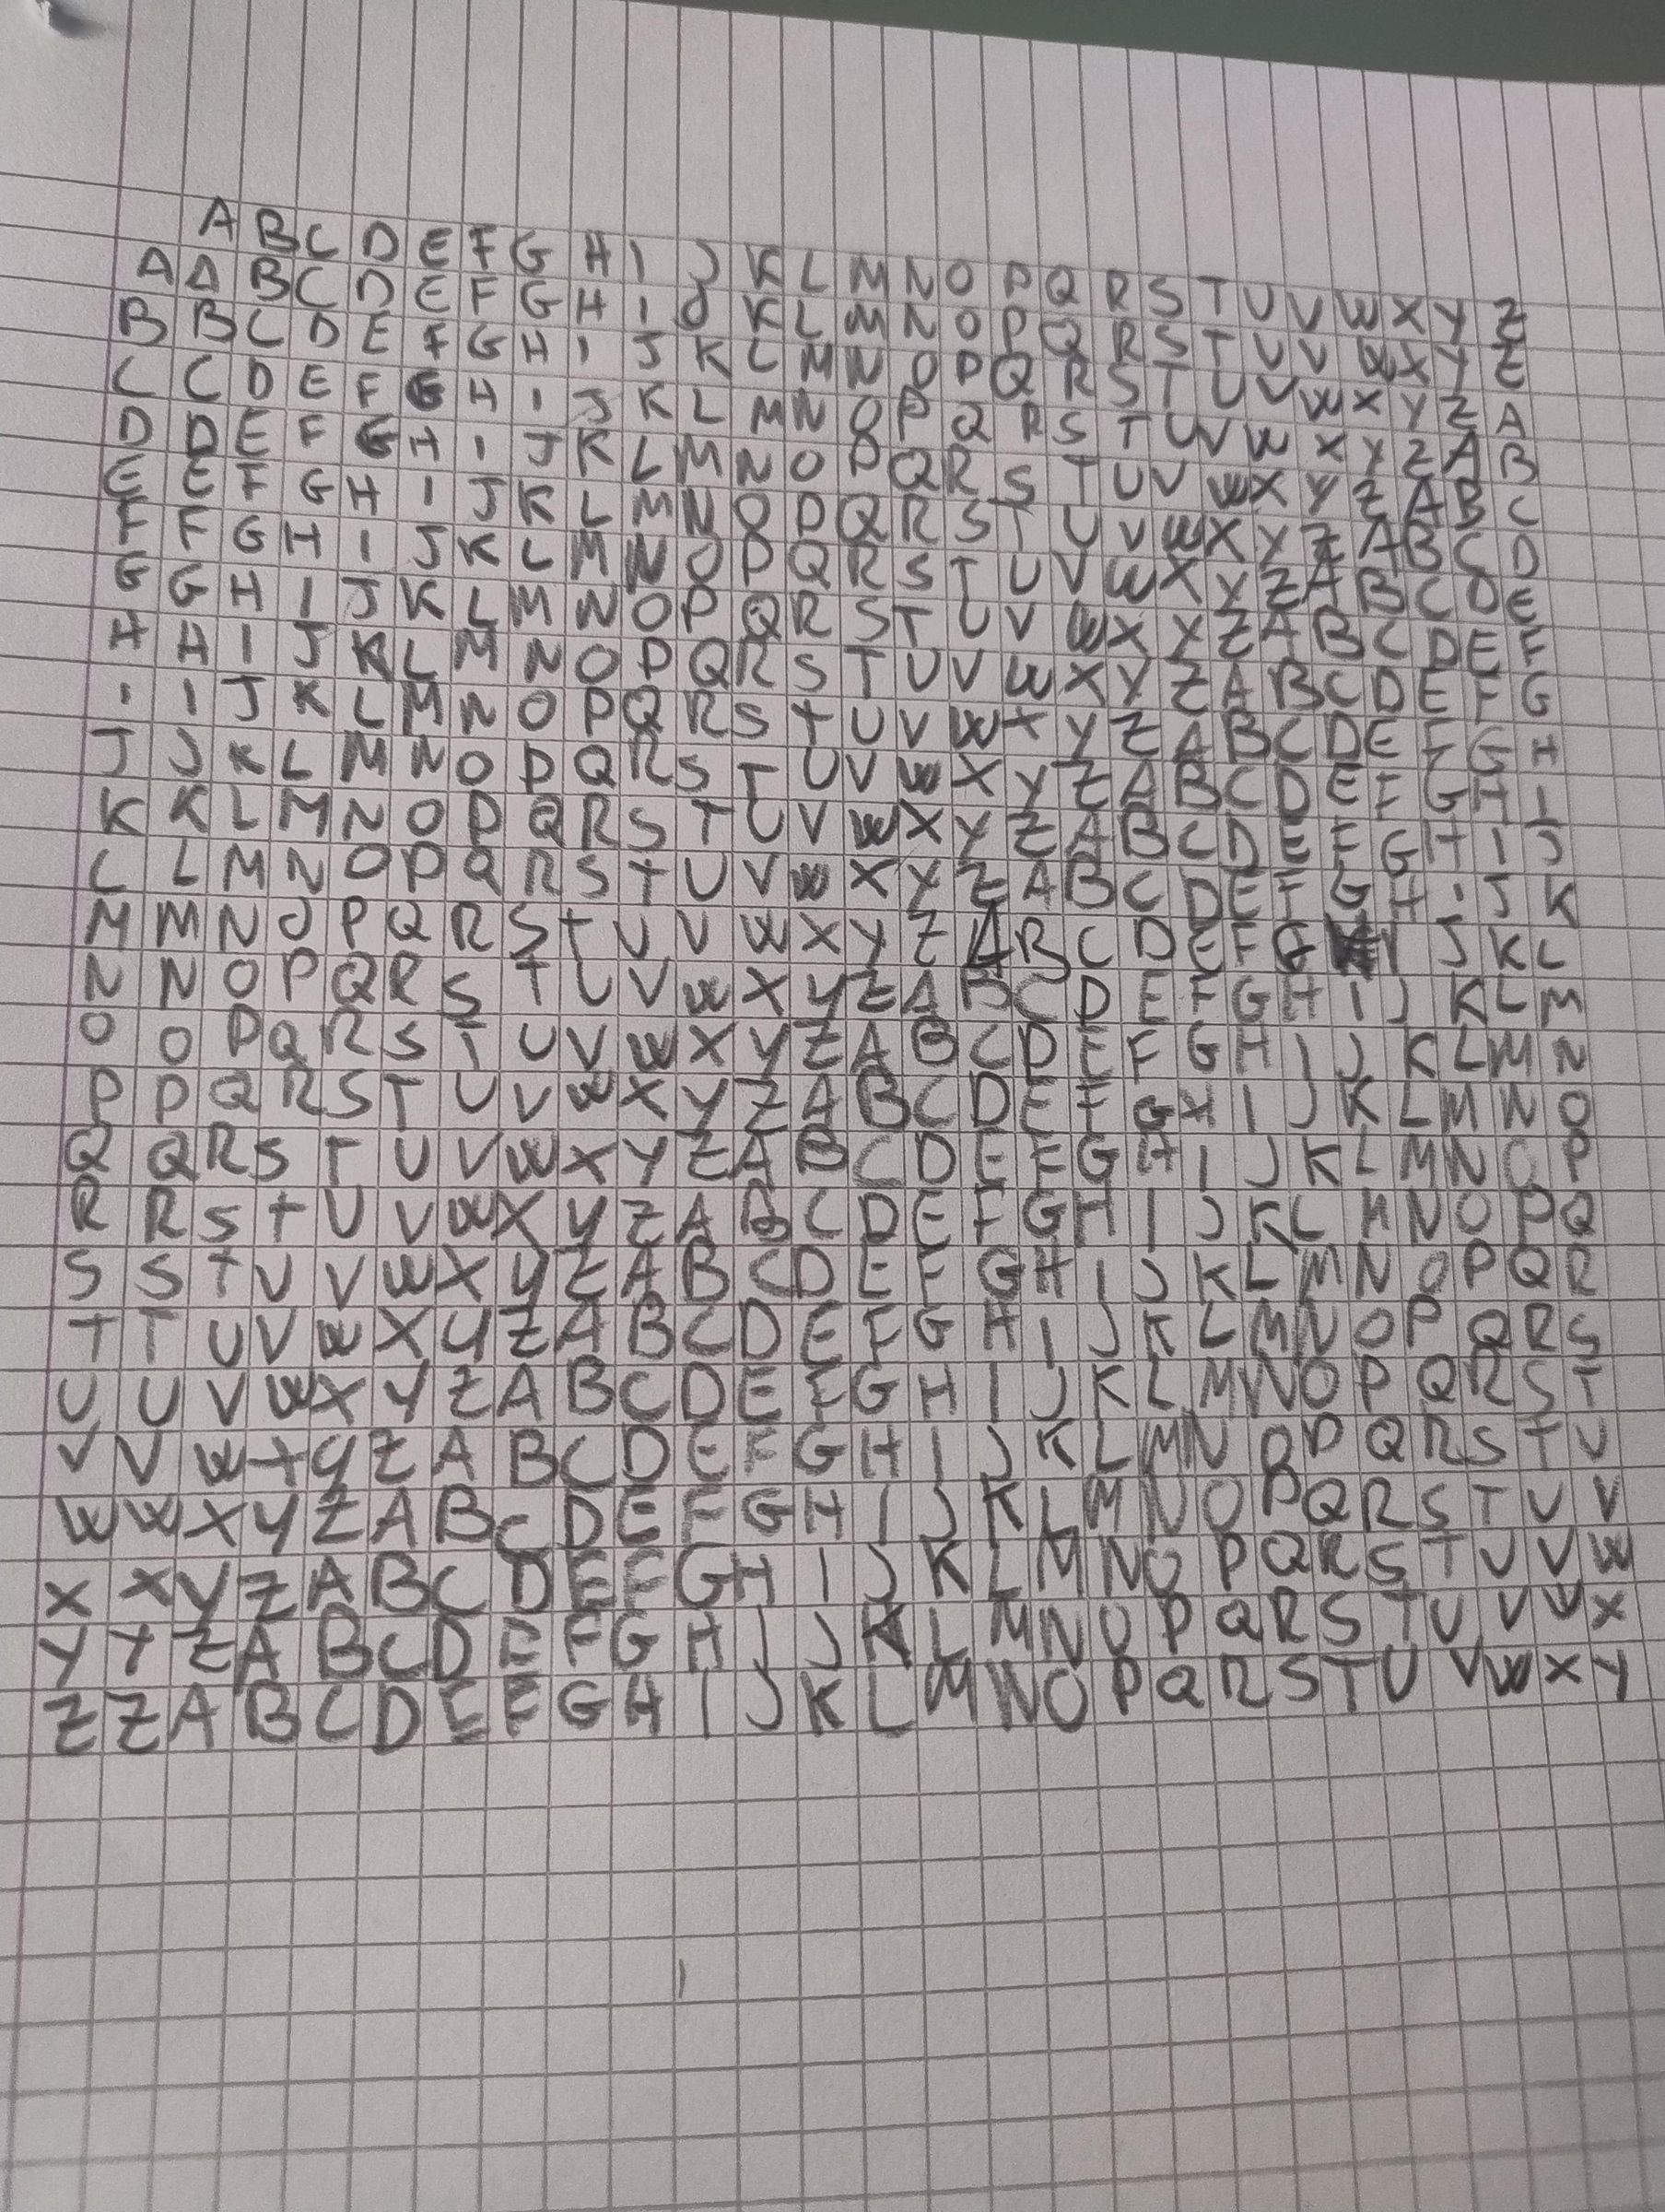 A B C D E F G H I J K L M N O P Q R S T U V W X Y Z
A A B C D E F G H I J K L M N O P Q R S T U V W X Y Z
B B C D E F G H I J K L M N O P Q R S T U V W X Y Z A
C C D E F G H I J K L M N O P Q R S T U V W X Y Z A B
D D E F G H I J K L M N O P Q R S T U V W X Y Z A B C
E E F G H I J K L M N O P Q R S T U V W X Y Z A B C D
F F G H I J K L M N O P Q R S T U V W X Y Z A B C D E
G G H I J K L M N O P Q R S T U V W X Y Z A B C D E F
H H I J K L M N O P Q R S T U V W X Y Z A B C D E F G
I I J K L M N O P Q R S T U V W X Y Z A B C D E F G H
J J K L M N O P Q R S T U V W X Y Z A B C D E F G H I
K K L M N O P Q R S T U V W X Y Z A B C D E F G H I J
L L M N O P Q R S T U V W X Y Z A B C D E F G H I J K
M M N O P Q R S T U V W X Y Z A B C D E F G H I J K L
N N O P Q R S T U V W X Y Z A B C D E F G H I J K L M
O O P Q R S T U V W X Y Z A B C D E F G H I J K L M N
P P Q R S T U V W X Y Z A B C D E F G H I J K L M N O
Q Q R S T U V W X Y Z A B C D E F G H I J K L M N O P
R R S T U V W X Y Z A B C D E F G H I J K L M N O P Q
S S T U V W X Y Z A B C D E F G H I J K L M N O P Q R
T T U V W X Y Z A B C D E F G H I J K L M N O P Q R S
U U V W X Y Z A B C D E F G H I J K L M N O P Q R S T
V V W X Y Z A B C D E F G H I J K L M N O P Q R S T U
W W X Y Z A B C D E F G H I J K L M N O P Q R S T U V
X X Y Z A B C D E F G H I J K L M N O P Q R S T U V W
Y Y Z A B C D E F G H I J K L M N O P Q R S T U V W X
Z Z A B C D E F G H I J K L M N O P Q R S T U V W X Y